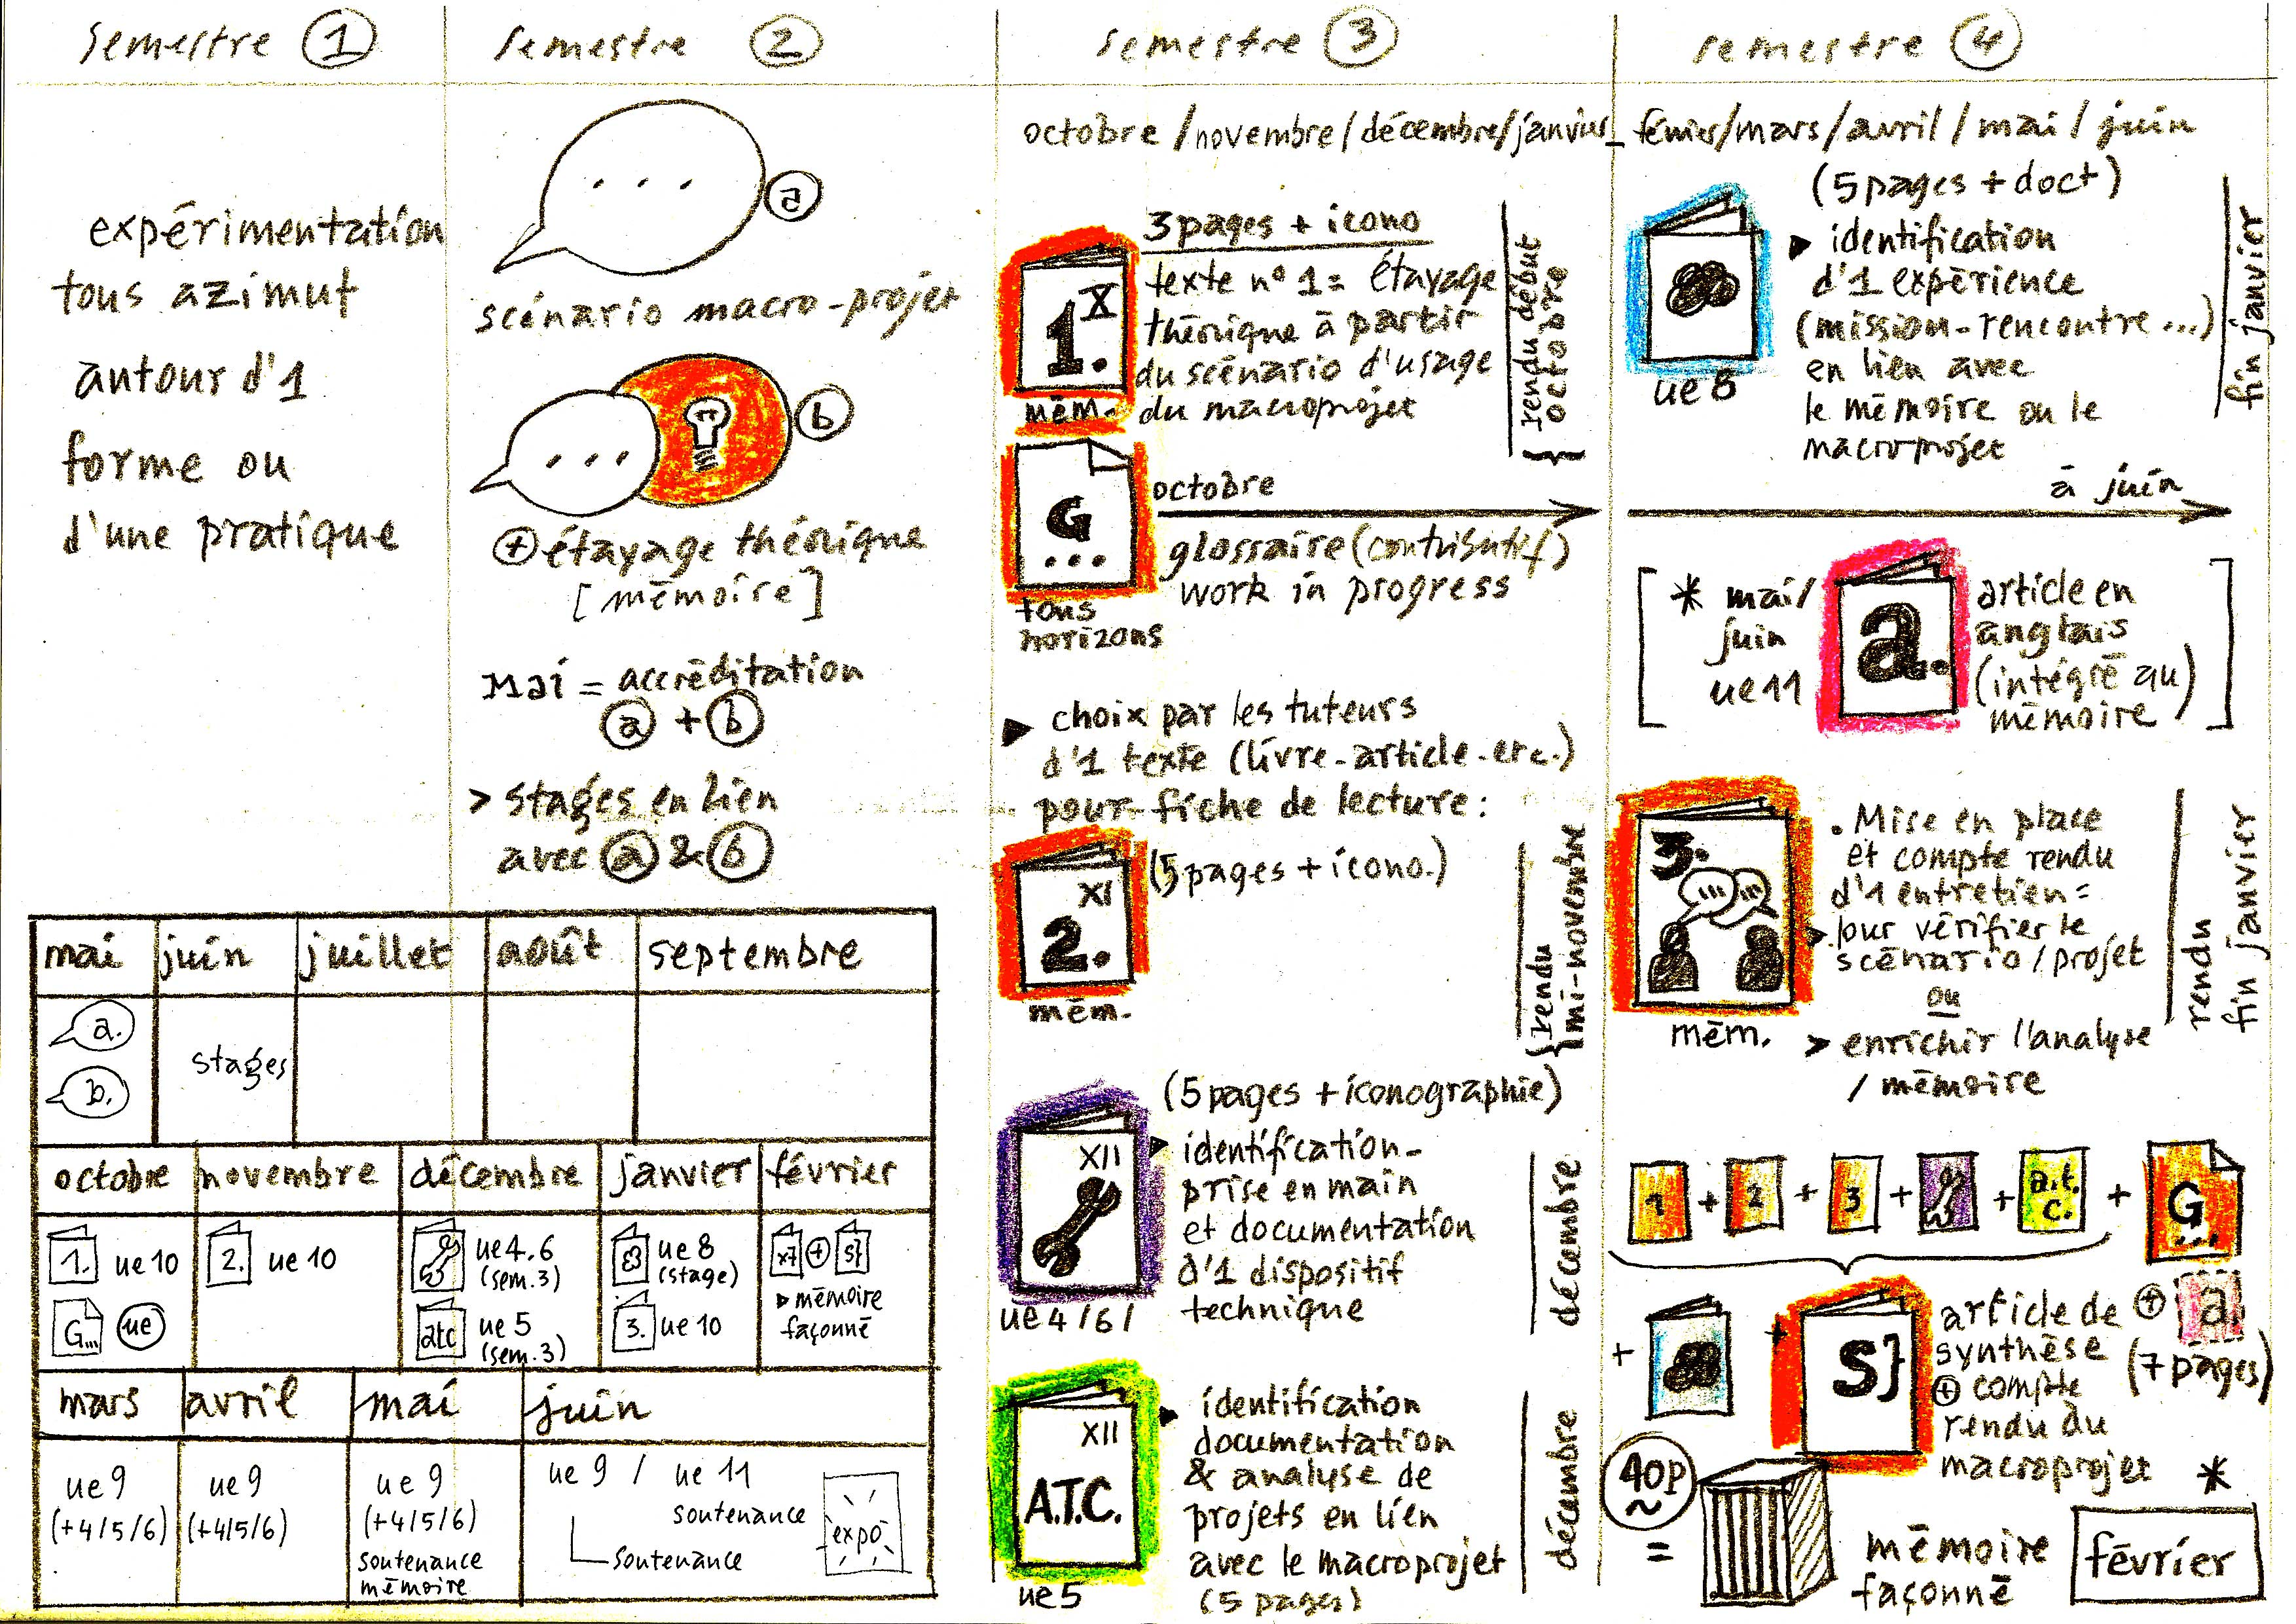 semestre 1
expérimentation
tous azimut
autour d'1
forme ou
d'une pratique
semestre 2
...
a
scénario macro-projet
...
b
+ étayage théorique
[mémoire]
Mai = accréditation
a + b
> stages en lien
avec a & b
mai juin juillet août septembre
a.
b.
stages
octobre novembre décembre janvier février
1. ue 10
G... ue
2. ue 10
ue 4.6
(sem.3)
atc ue 5
(sem.3)
ue 8
(stage)
3. ue 10
x7 + S}
▸ mémoire
façonné
mars avril mai juin
ue 9
(+4/5/6)
ue 9
(+4/5/6)
ue 9
(+4/5/6)
soutenance
mémoire
ue 9 / ue 11
soutenance
soutenance
expo
semestre 3
octobre/novembre/décembre/janvier_
X
1.
mém.
3 pages + icono
texte n° 1 = étayage
théorique à partir
du scénario d'usage
du macroprojet
{ rendu début
octobre
G
...
tous
horizons
octobre
glossaire (contributif)
work in progress
▸ choix par les tuteurs
d'1 texte (livre-article-etc.)
pour fiche de lecture :
XI
2.
mém.
(5 pages + icono.)
{ rendu
mi-novembre
(5 pages + iconographie)
XII
ue 4/6/
▸ identification-
prise en main
et documentation
d'1 dispositif
technique
décembre
XII
A.T.C.
ue 5
▸ identification
documentation
& analyse de
projets en lien
avec le macroprojet
(5 pages)
décembre
semestre 4
février/mars/avril/mai/juin
(5 pages + doct)
ue 8
▸ identification
d'1 expérience
(mission-rencontre...)
en lien avec
le mémoire ou le
macroprojet
fin janvier
à juin
[* mai/
juin
ue 11
a.
article en
anglais
(intégré au)
mémoire]
3.
mém.
. Mise en place
et compte rendu
d'1 entretien =
> pour vérifier le
scénario/projet
ou
> enrichir l'analyse
/ mémoire
rendu
fin janvier
1 + 2 + 3 + + a.t.c. + G...
+ + S}
article de + a.
synthèse (7 pages)
+ compte
rendu du
macroprojet *
40p
~
=
mémoire
façonné
février